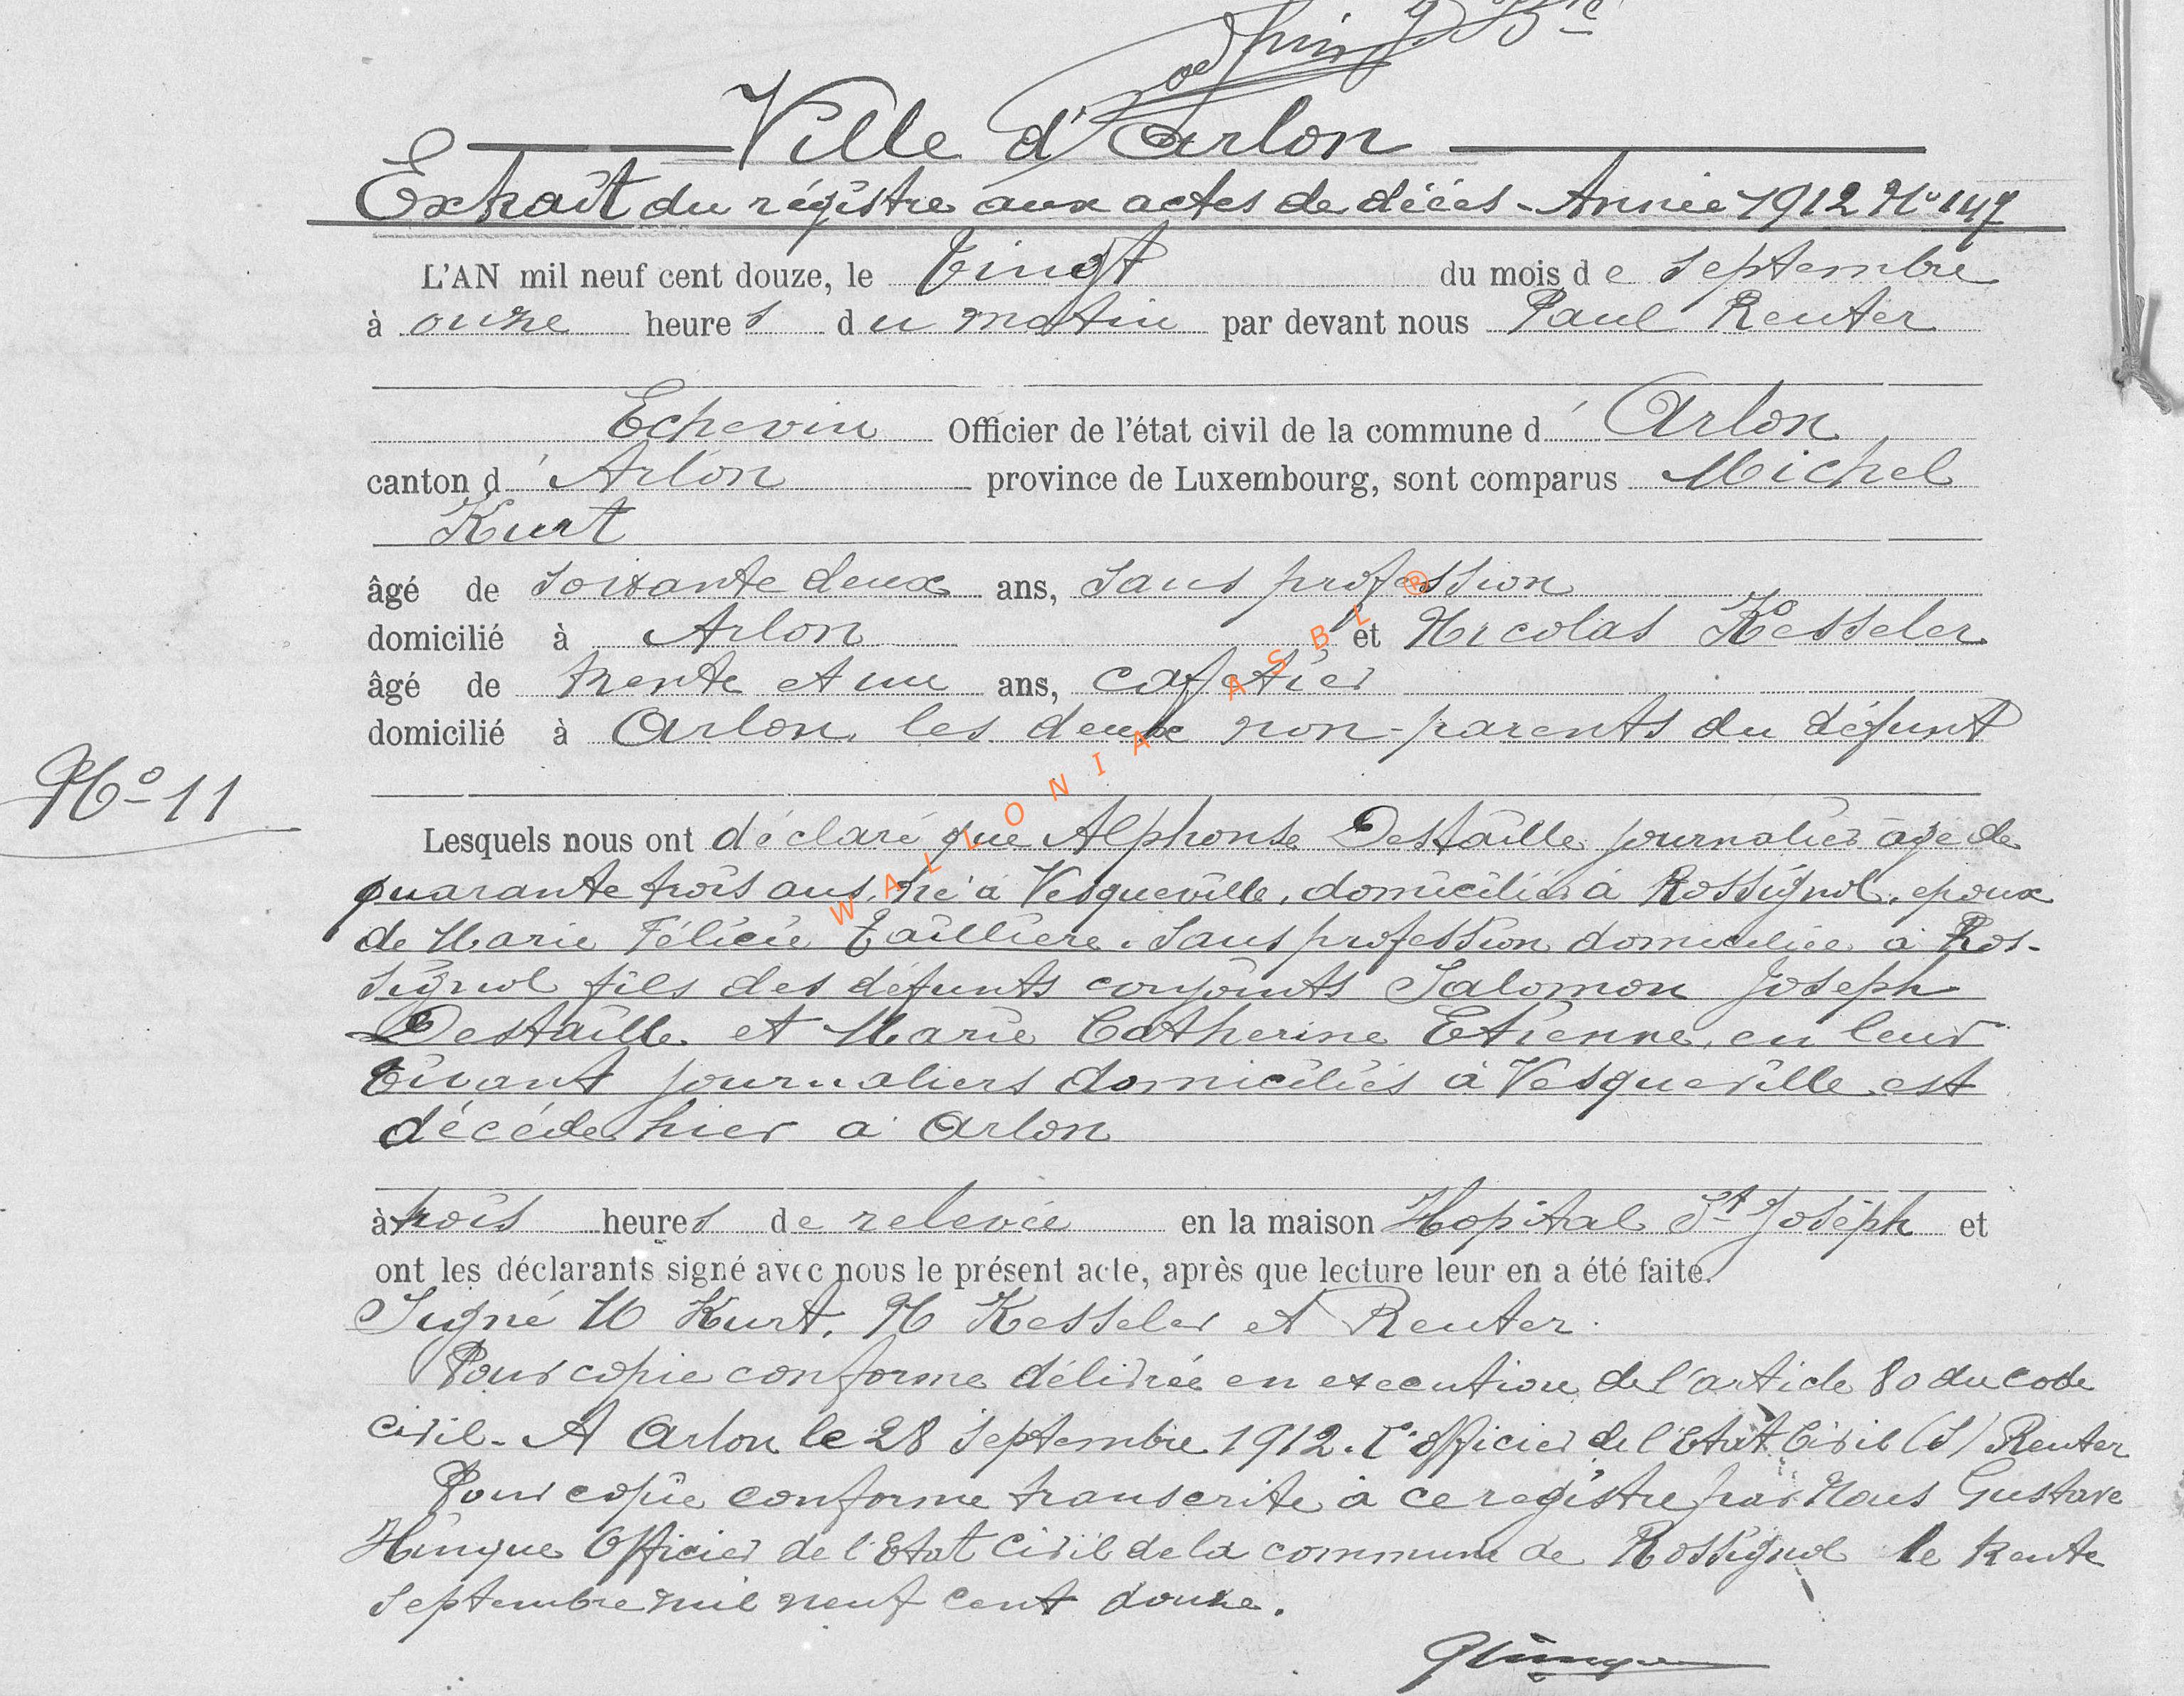 Ville d'Arlon
Extrait du régistre aux actes de décès - Année 1912 No 147
L'AN mil neuf cent douze, le Vingt du mois de septembre
à onze heures du matin par devant nous Paul Reuter
Echevin Officier de l'état civil de la commune d'Arlon
canton d'Arlon province de Luxembourg, sont comparus Michel
Kurt
âgé de soixante deux ans, sans profession
domicilié à Arlon et Nicolas Kesseler
âgé de trente et un ans, cafetier
domicilié à Arlon, les deux non-parents du défunt
No 11
Lesquels nous ont déclaré que Alphonse Destaille journalier âgé de
quarante trois ans, né à Vesqueville, domicilié à Rossignol, epoux
de Marie Félicie Taillière, sans profession domiciliée à Ros-
signol fils des défunts conjoints Salomon Joseph
Destaille et Marie Catherine Etienne, en leur
vivant journaliers domiciliés à Vesqueville est
décédé hier à Arlon
à trois heures de relevée en la maison Hopital St Joseph et
ont les déclarants signé avec nous le présent acte, après que lecture leur en a été faite.
Signé M Kurt, N Kesseler et Reuter.
Pour copie conforme délivrée en execution de l'article 80 du code
civil - A Arlon le 28 septembre 1912. L'officier de l'Etat Civil (S) Reuter
Pour copie conforme transcrite à ce registre par Nous Gustave
Hinque Officier de l'Etat Civil de la commune de Rossignol le trente
septembre mil neuf cent douze.
GHinque
WALLONIA ASBL ®